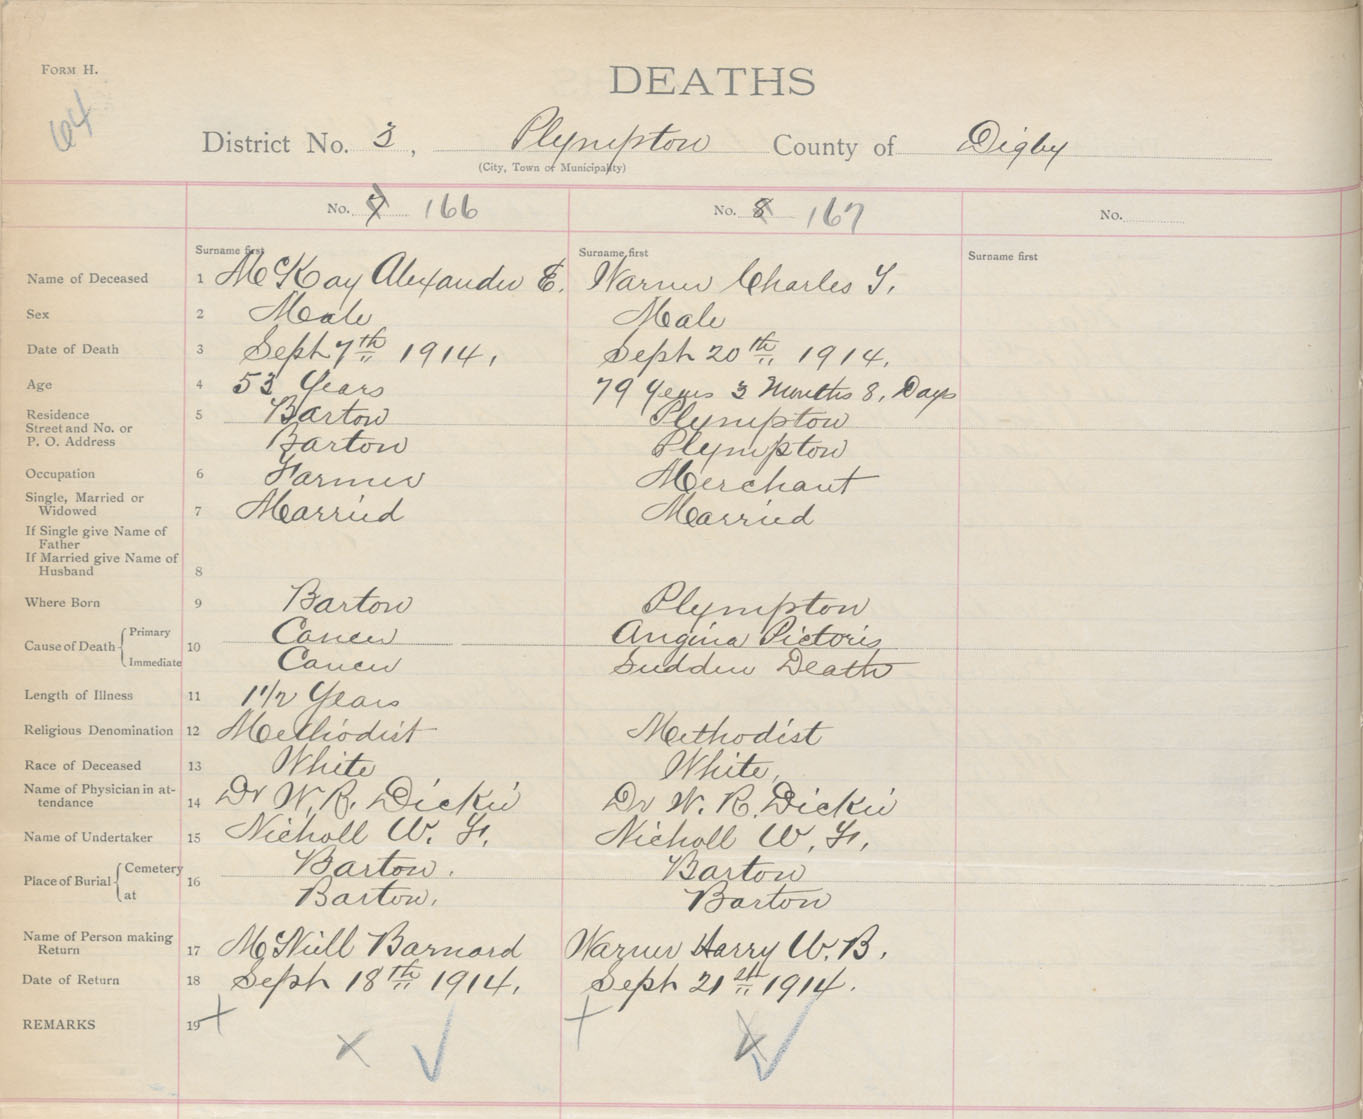 FORM H.
DEATHS
64
District No. 3, Plympton County of Digby
(City, Town or Municipality)
No. 7 166 No. 8 167 No.
Surname first Surname first Surname first
Name of Deceased 1 McKay Alexander E. Warner Charles T.
Sex 2 Male Male
Date of Death 3 Sept 7th 1914. Sept 20th 1914.
Age 4 53 Years 79 Years 3 Months 8, Days
Residence 5 Barton Plympton
Street and No. or
P. O. Address Barton Plympton
Occupation 6 Farmer Merchant
Single, Married or
Widowed 7 Married Married
If Single give Name of
Father
If Married give Name of
Husband 8
Where Born 9 Barton Plympton
Cause of Death 10 Primary Cancer Angina Pictoris
Immediate Cancer Sudden Death
Length of Illness 11 1 1/2 Years
Religious Denomination 12 Methodist Methodist
Race of Deceased 13 White White,
Name of Physician in at-
tendance 14 Dr W. R. Dickie Dr W. R. Dickie
Name of Undertaker 15 Nicholl W. F. Nicholl W. F.
Place of Burial 16 Cemetery Barton. Barton
at Barton. Barton
Name of Person making
Return 17 McNeill Barnard Warner Harry W. B.
Date of Return 18 Sept 18th 1914. Sept 21st 1914.
REMARKS 19